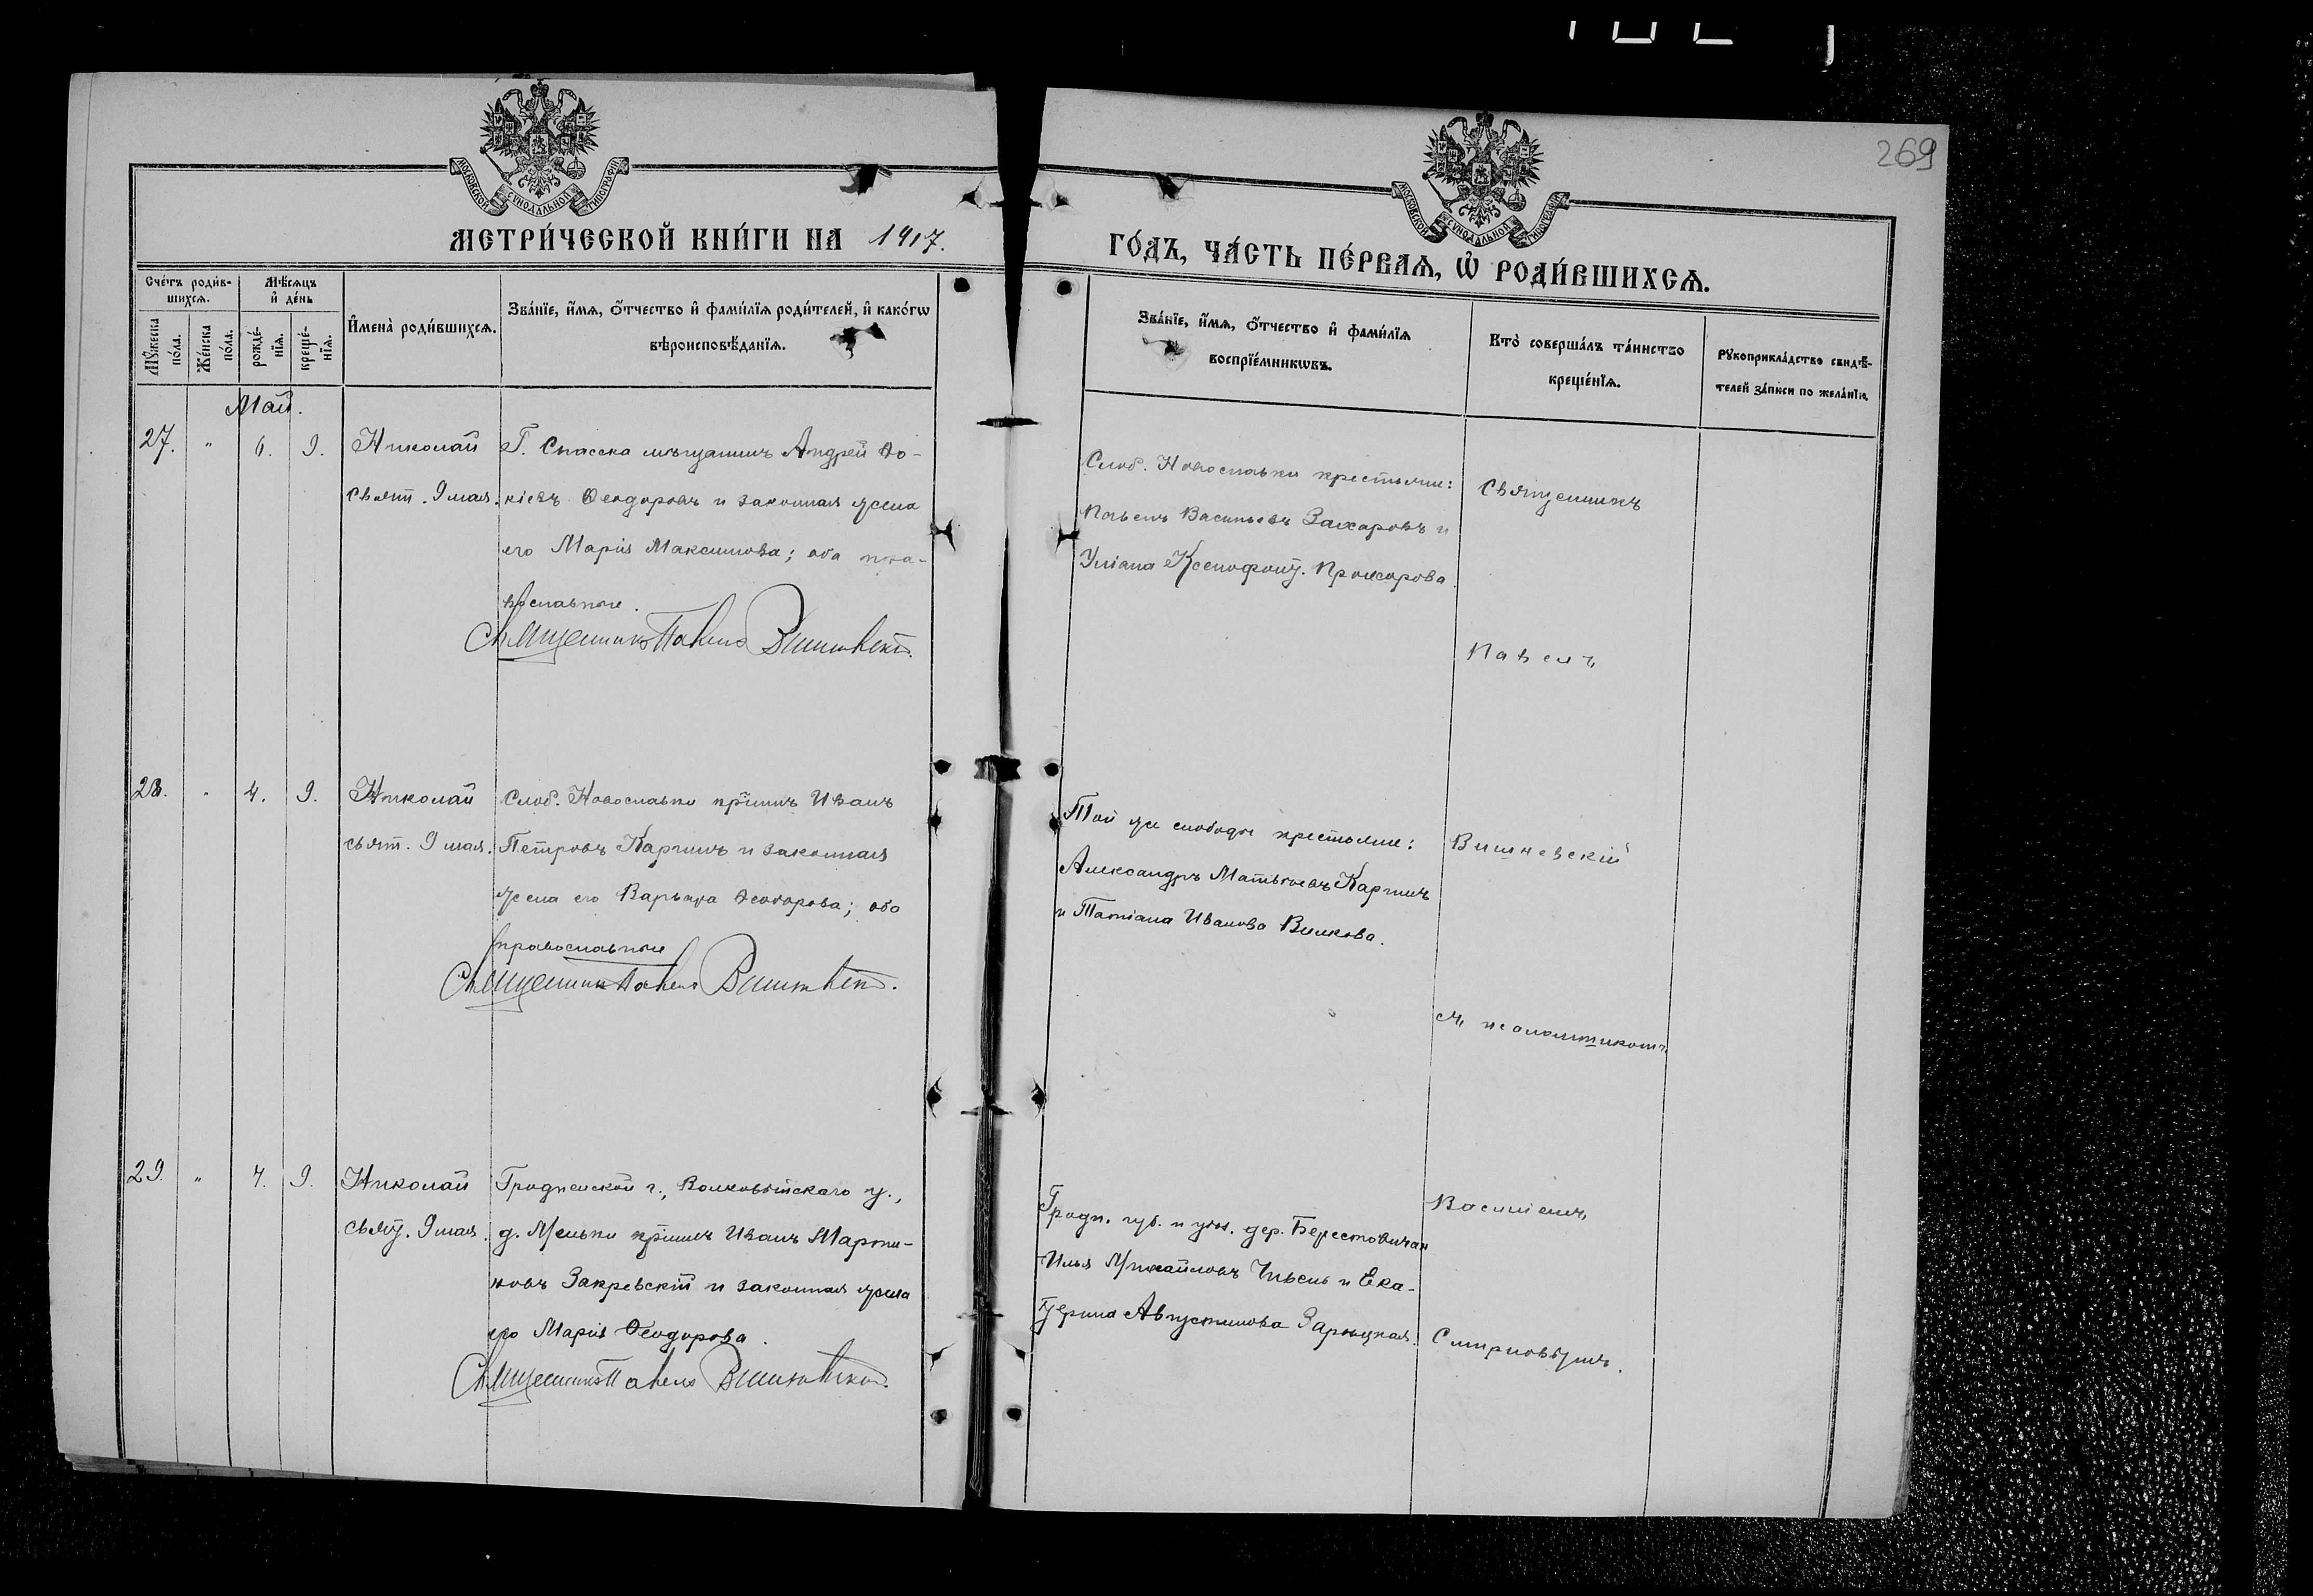 269
МОСКОВСКОЙ СѴНОДАЛЬНОЙ ТИПОГРАФІИ
МОСКОВСКОЙ СѴНОДАЛЬНОЙ ТИПОГРАФІИ
МЕТРИ́ЧЕСКОЙ КНИ́ГИ НА 1917.
ГО́ДЪ, ЧА́СТЬ ПЕ́РВАЯ, Ѽ РОДИ́ВШИХСѦ.
Сче́тъ роди́в-
шихсѧ.
Мѣ́сѧцъ
и҆ де́нь
Мꙋ́жеска
по́ла.
Же́нска
по́ла.
рожде́-
нїѧ.
креще́-
нїѧ.
И҆мена̀ роди́вшихсѧ.
Зва́нїе, и҆́мѧ, ѻ҆́тчество и҆ фами́лїѧ роди́телей, и҆ како́гѡ
вѣроисповѣ́данїѧ.
Зва́нїе, и҆́мѧ, ѻ҆́тчество и҆ фами́лїѧ
воспрїе́мникѡвъ.
Кто̀ соверша́лъ та́инство
креще́нїѧ.
Рꙋкоприкла́дство свидѣ́-
телей за́писи по жела́нїю.
Май.
27. " 6. 9. Николай
свят. 9 мая.
Г. Спасска мѣщанинъ Андрей
Ѳеодоровъ и законная жена
его Марія Максимова; оба пра-
вославные.
Священникъ Павелъ Вишневскій.
Слоб. Новославки крестьяне:
Павелъ Васильевъ Захаровъ и
Уліана Ксенофонт. Прохорова.
Священникъ
Павелъ
28. " 4. 9. Николай
свят. 9 мая.
Слоб. Новославки кр̃нинъ Иванъ
Петровъ Каргинъ и законная
жена его Варвара Ѳеодорова; оба
православные
Священникъ Павелъ Вишневскій.
Той же слободы крестьяне:
Александръ Матвѣевъ Каргинъ
и Татіана Иванова Вилкова.
Вишневскій
съ псаломщикомъ
29. " 4. 9. Николай
свят. 9 мая.
Гродненской г., Волковыйскаго у.,
д. Мельки кр̃нинъ Иванъ Марти-
новъ Закревскій и законная жена
его Марія Ѳеодорова.
Священникъ Павелъ Вишневскій.
Гродн. губ. и уѣз. дер. Берестовичан
Илья Михайловъ и Ека-
терина Августинова Зарецкая.
Василіемъ
Смирновымъ.